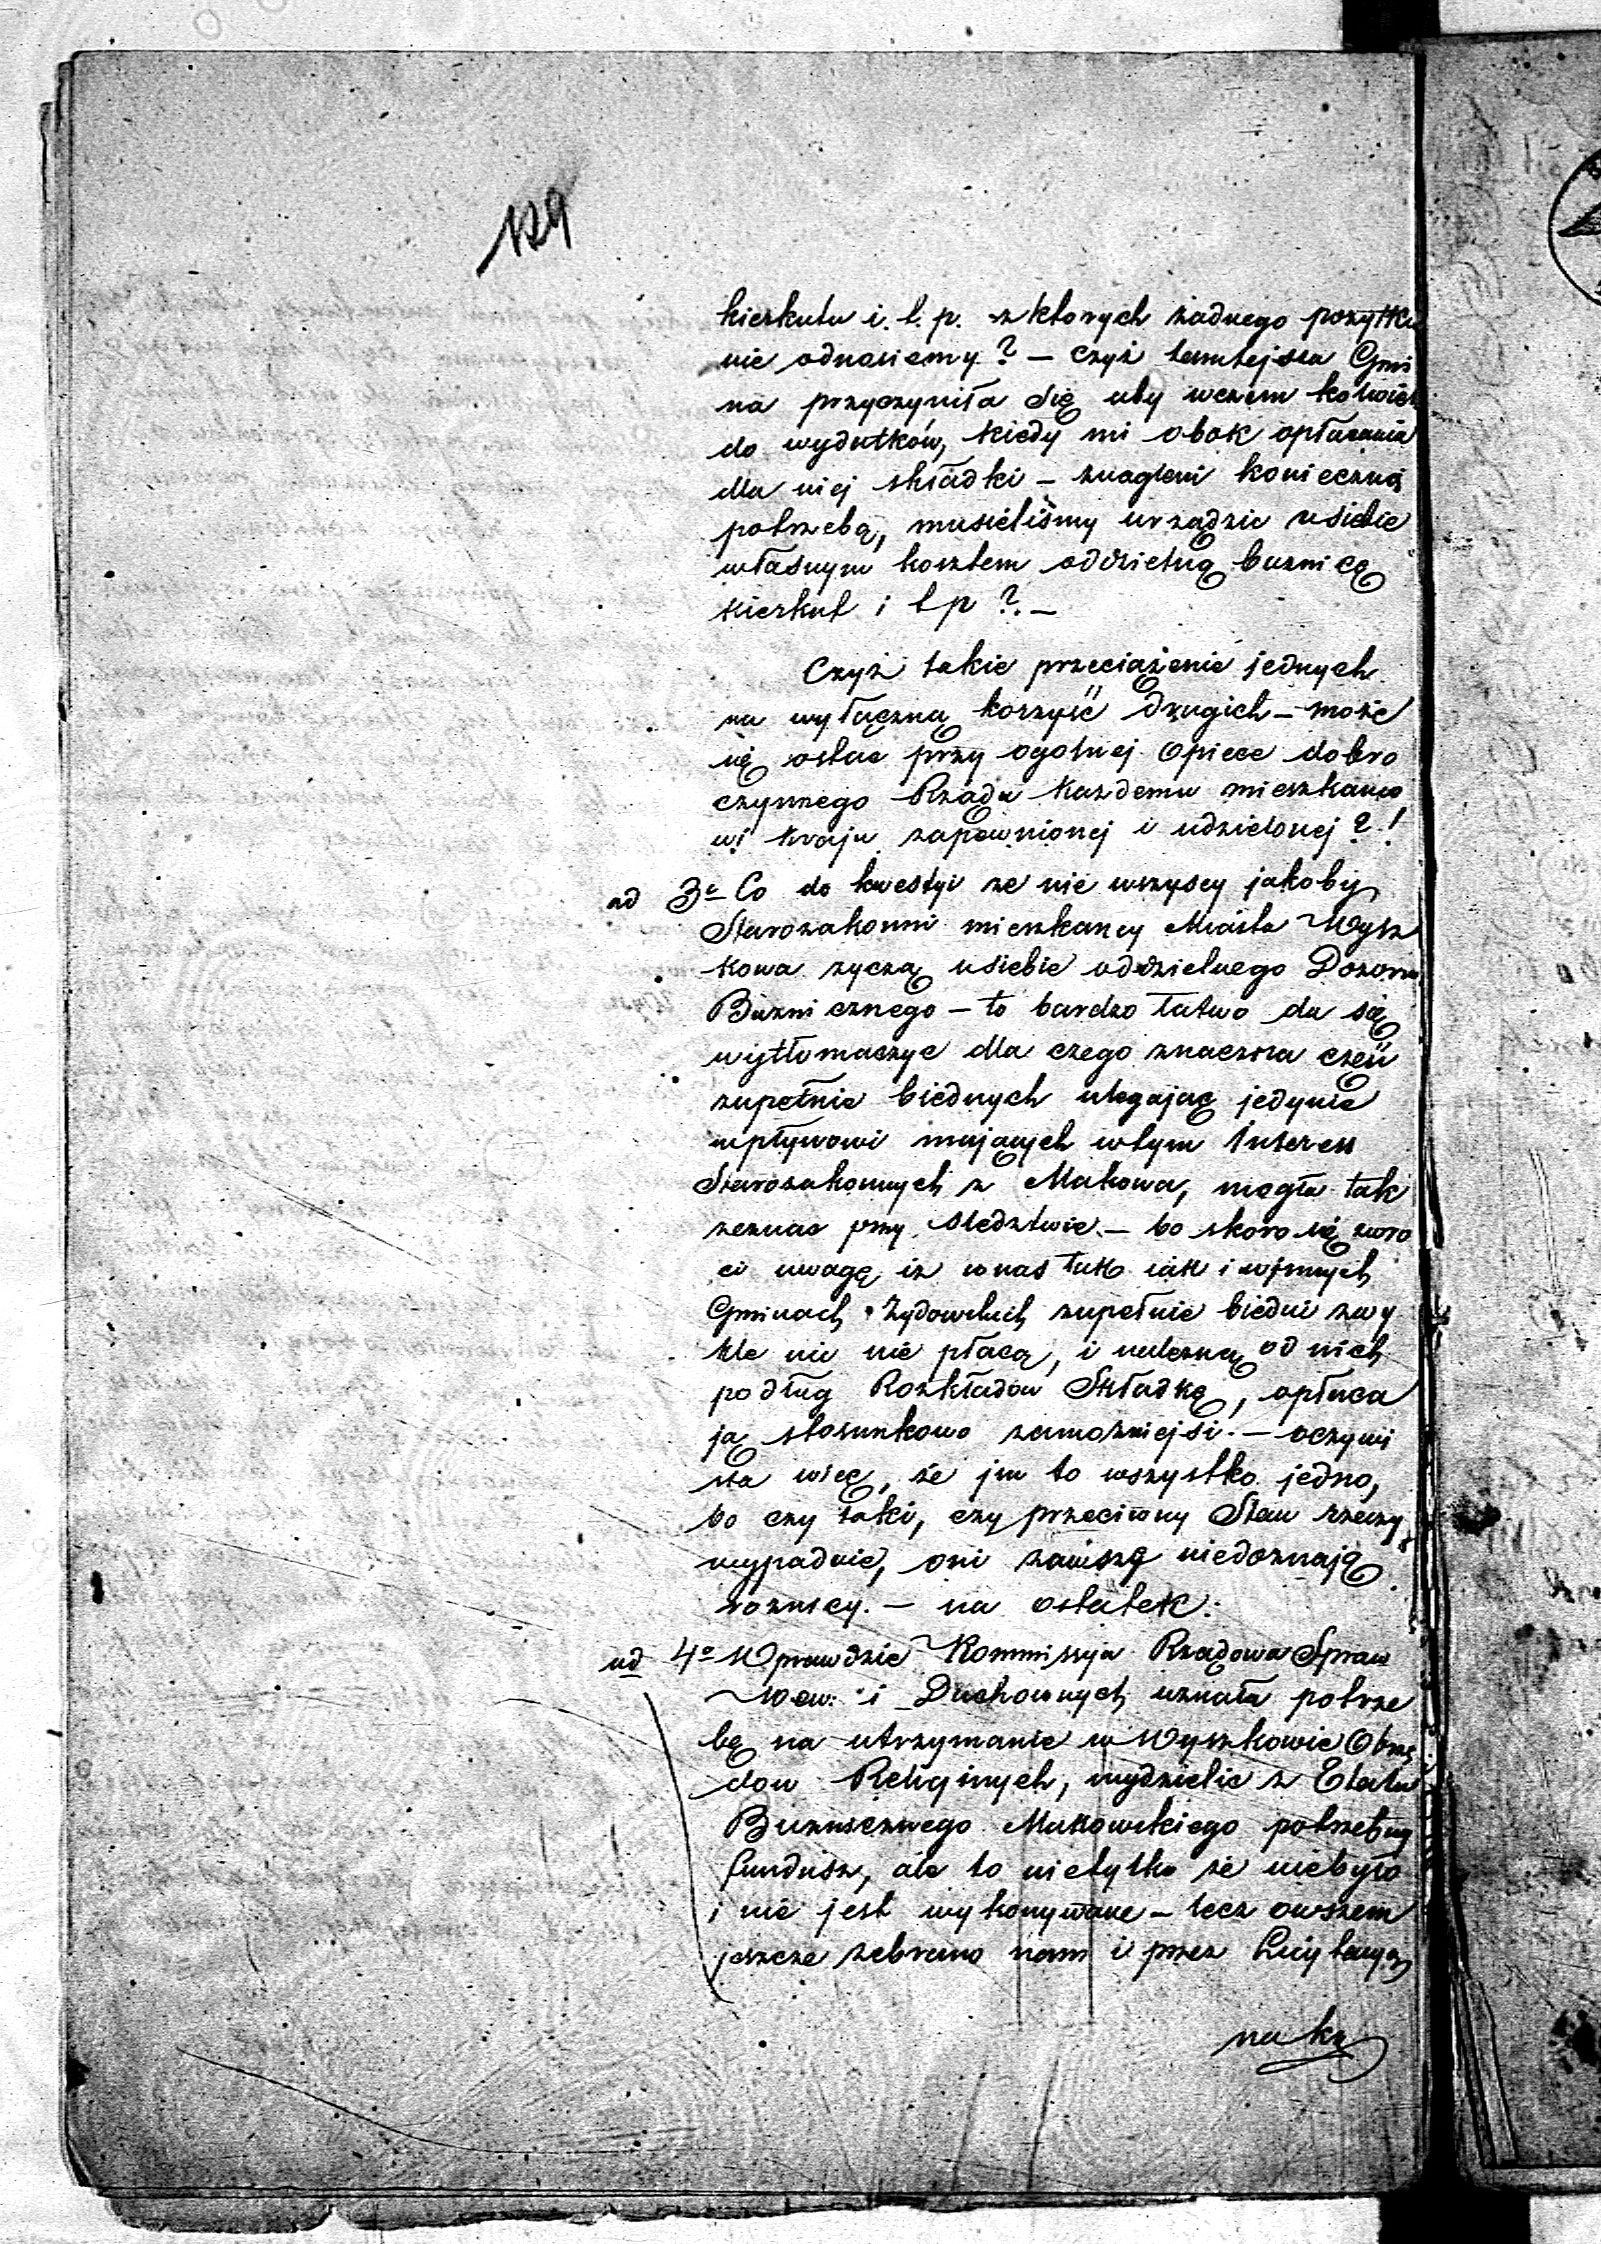 129
kierkutu i. t. p. z ktorych żadnego pożytku
nie odnosiemy? — czyż tamtejsza Gmi
na przyczyniła się aby wczem kolwiek
do wydatków, kiedy mi obok opłacania
dla niej składki — znagleni konieczną
potrzebą, musieliśmy urządzic u siebie
własnym kosztem oddzielną buznicę
kierkut i t p ?. —
Czyż takie przeciążenie jednych
na wyłączną korzyść drugich — może
się ostac przy ogolnej opiece dobro
czynnego Rządu każdemu mieszkanco
wi kraju zapewnionej i udzielonej ?!
ad 3o Co do kwestyi ze nie wszyscy jakoby
Starozakonni mieszkancy Miasta Wysz
kowa zyczą usiebie oddzielnego Dozoru
Buznicznego — to bardzo łatwo da się
wytłomaczyc dla czego znaczna częsć
zupełnie biednych ulegając jedynie
wpływowi mających wtym Interess
Starozakonnych z Makowa, mogła tak
zeznac przy sledztwie. — bo skoro się zwro
ci uwagę iz unas tak iak i winnych
Gminach Zydowskich zupełnie biedni zwy
kle nic nie płacą, i należną od nich
podług Rozkładow Składkę, opłaca
ją stosunkowo zamożniejsi. — oczywi
sta więc, że jm to wszystko jedno,
bo czy taki, czy przeciwny Stan rzeczy
wypadnie, oni zawszę niedoznają
roznicy. — na ostatek:
ad 4o Wprawdzie Kommissya Rządowa Spraw
Wew: i Duchownych uznała potrze
bę na utrzymanie w Wyszkowie Obrzę
dow Religinych, wydzielic z Etatu
Buznicznego Makowskiego potrzebny
fundusz, ale to nietylko że niebyło
i nie jest wykonywane — lecz owszem
jeszcze zebrano nam i przez Licytacyą